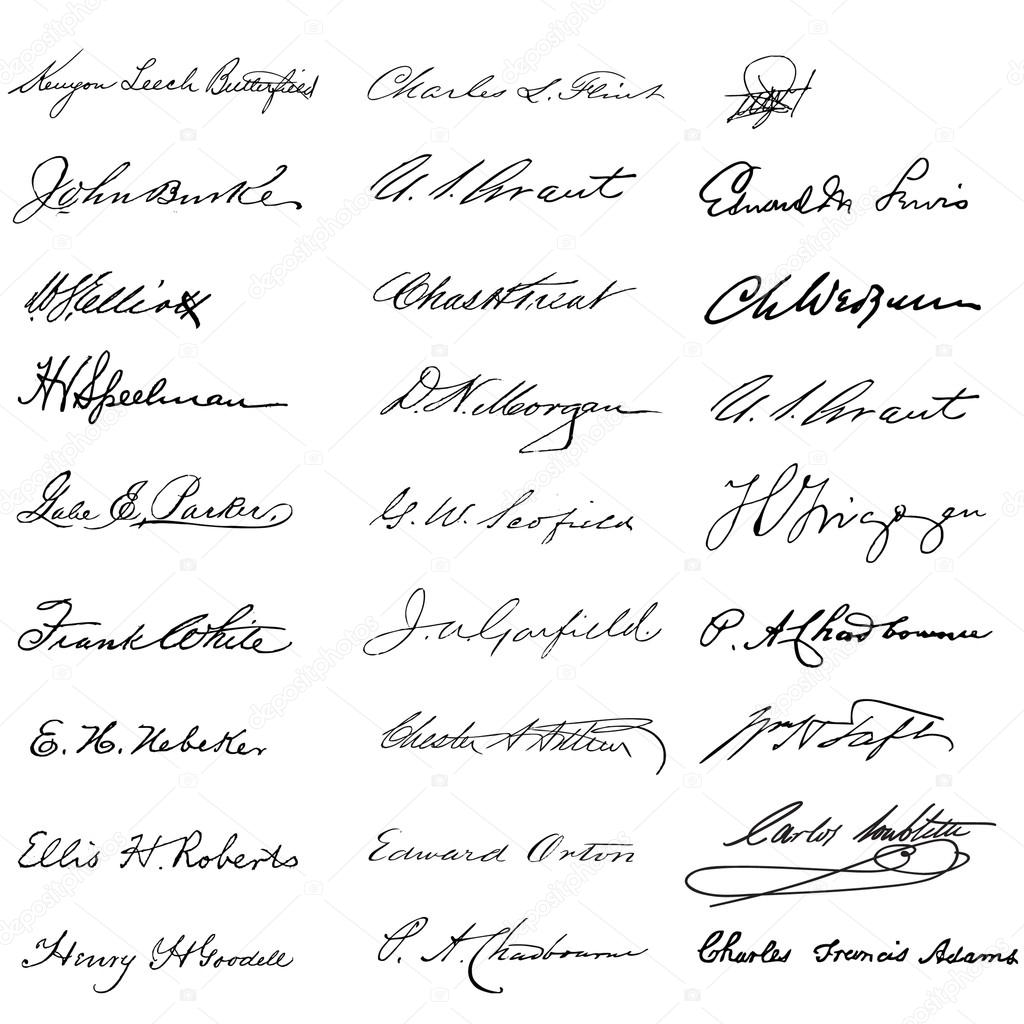 Kenyon Leech Butterfield Charles L. Flint
John Burke U. S. Grant Edward M Lewis
W S Elliott Chas H Treat
H V Speelman D. N. Morgan U. S. Grant
Gabe E. Parker. G. W. Scofield
Frank White J. A. Garfield. P. A. Chadbourne
E. H. Nebeker Chester A Arthur Wm H Taft
Ellis H. Roberts Edward Orton Carlos Soublette
Henry H Goodell P. A. Chadbourne Charles Francis Adams
depositphotos